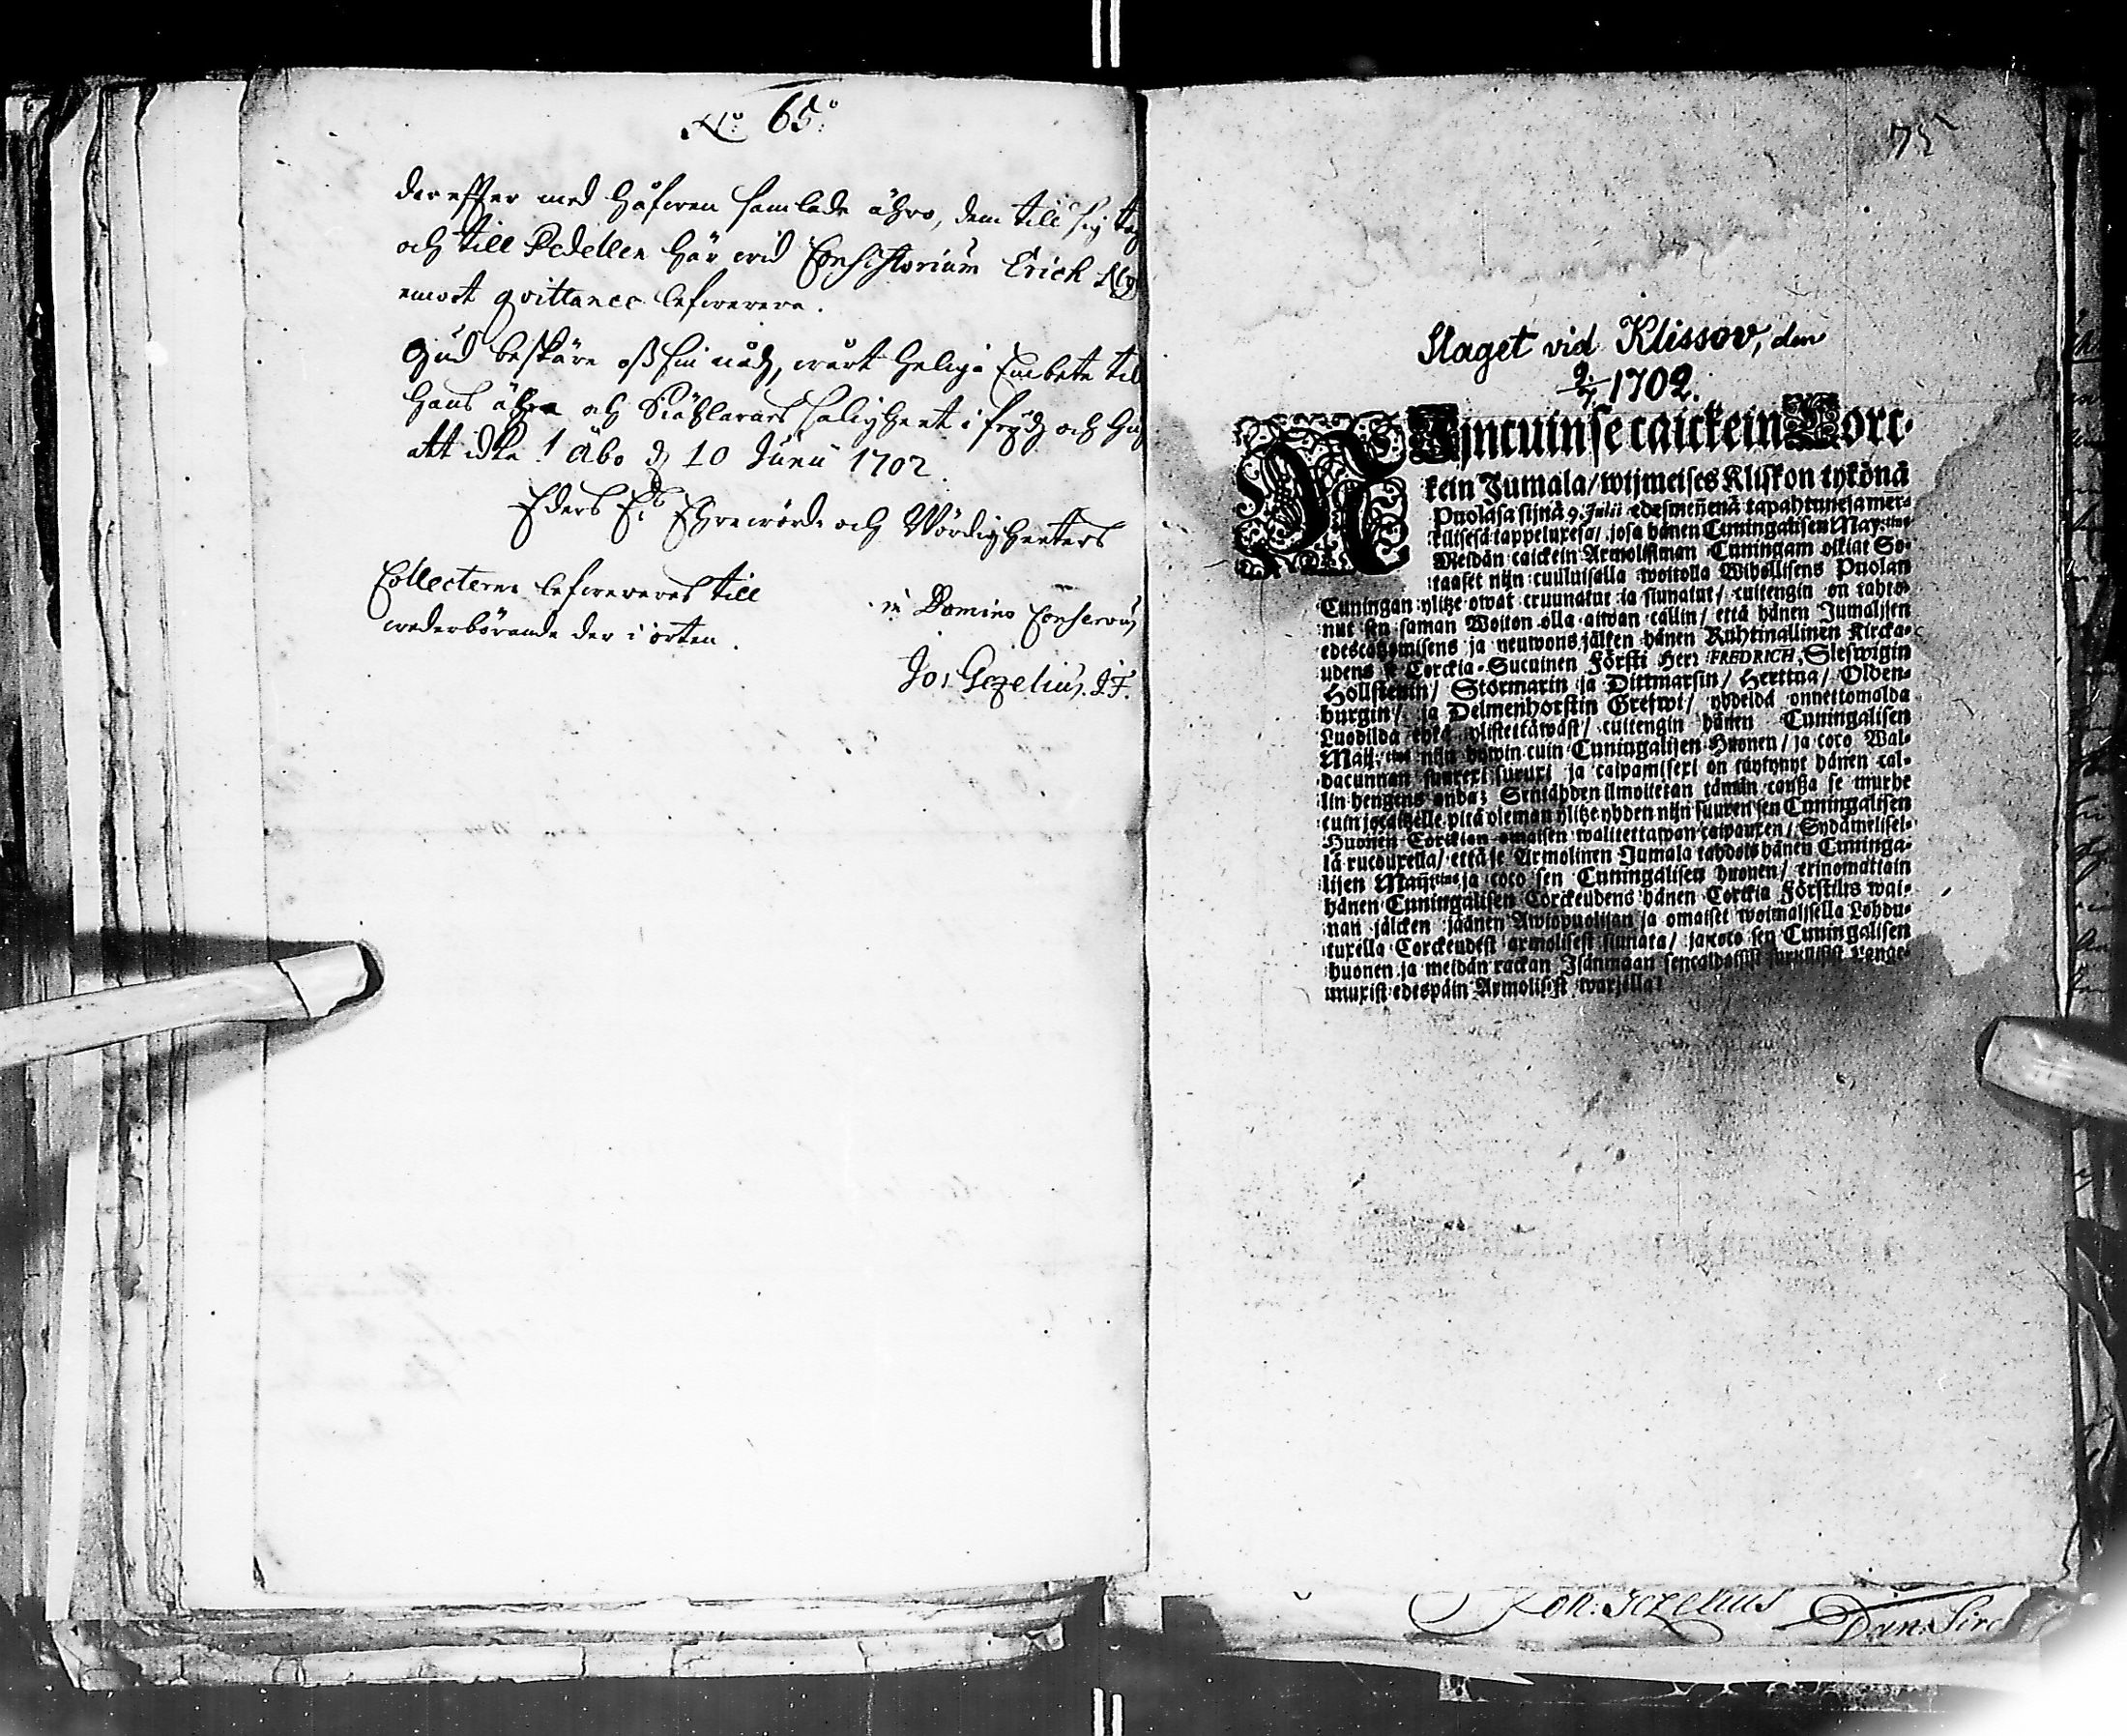 No: 65:
der effter med håfwen samlade ähro, dem till sig
och till Pedellen här wid Consistorium Erich
emoot qvittance lefwerera.
Gud beskäre oss sin nåd, wårt helige Embete til
hans ähra och Siählarnas saligheet i frögd och
att idka! Åbo d 10 Junii 1702.
Eders Ehrewörde och Wördigheeters
Collecterne lefwereres till
wederbörande der i orten.
in Domino Conservus
Joh Gezelius. J.F.
75
Slaget vid Klissov, den
9/7 1702.
NIjncuin se caickein Corc-
kein Jumala/ wijmeises Kliskon tykönä
Puolasa sijnä 9. Julii edesmeñenä tapahtunesa mer-
kilisesä tappeluxesa/ josa hänen Cuningalisen May:tins
Meidän caickein Armolisiman Cuningam oikiat So-
taaset nijn cuuluisalla woitolla Wihollisens Puolan
Cuningan ylitze owat cruunatut ja siunatut/ cuitengin on tahto-
nut sen saman Woiton olla aiwan callin/ että hänen Jumalisen
edescatzomisens ja neuwons jälken hänen Ruhtinallinen Kircka-
udens se Corckia-Sucuinen Försti Herr FREDRICH, Sleswigin
Hollstenin/ Stormarin ja Dittmarsin/ Herttua/ Olden-
burgin/ ja Delmenhorstin Grefwi/ yhdeldä onnettomalda
Luodilda ylistettäwäst/ cuitengin hänen Cuningalisen
May:tins nijn hywin cuin Cuningalisen Huonen/ ja coco Wal-
dacunnan suurexi suruxi ja caipamisexi on täytynyt hänen cal-
lin hengens anda; Sentähden ilmoitetan tämän causta se murhe
cuin jocaitzelle pitä oleman ylitze yhden nijn suuren sen Cuningalisen
Huonen Corckian omaisen walitettawan caipauxen/ Sydämelisel-
lä rucouxella/ että se Armolinen Jumala tahdois hänen Cuninga-
lisen May:tins ja coco sen Cuningalisen huonen/ erinomattain
hänen Cuningalisen Corckeudens hänen Corckia Förstilns wai-
nan jälcken jäänen Awiopuolisan ja omaiset woimalisella Lohdu-
tuxella Corckeudest armolisest siunata/ ja coco sen Cuningalisen
huonen ja meidän rackan Isänmaan sencaldaisist surullisist Lange-
muxist edespäin Armolisest warjella!
Joh: Gezelius